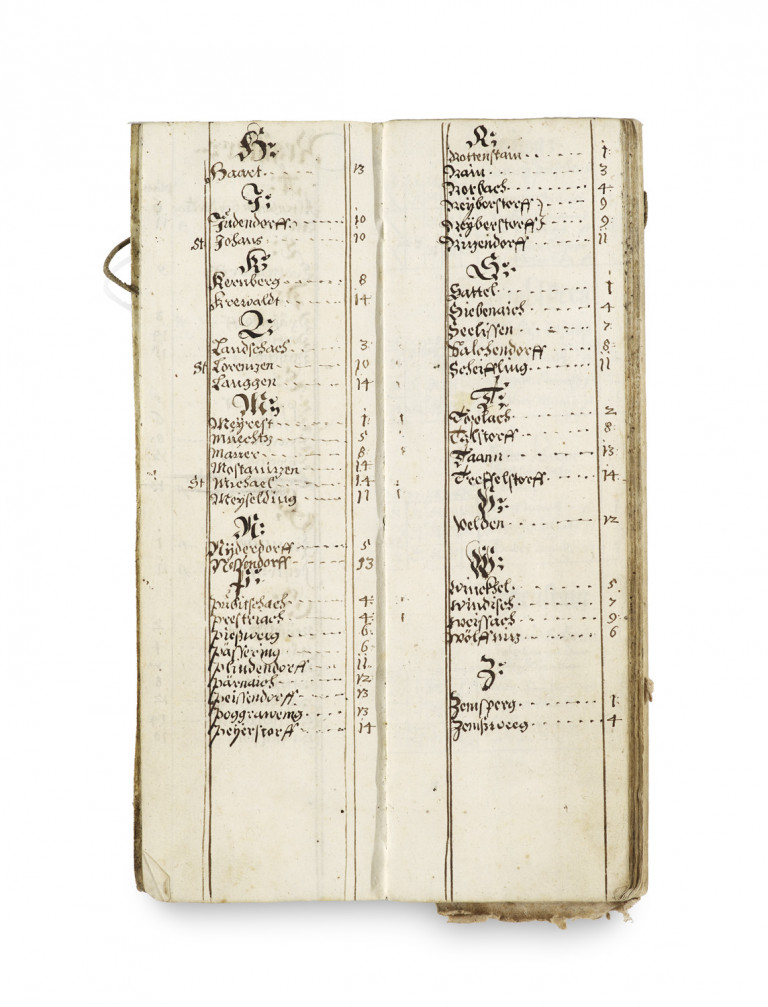 H:
Haart 13
J:
Judendorff 10
St Johans 10
K:
Kernberg 8
Krewaldt 14
L:
Landschach 3
St Lorenzen 10
Lauggen 14
M:
Meyrest 1
5
Mairer 8
14
St Michael 14
Meyselding 11
N:
Nÿderdorff 5
Nessendorff 13
P:
Pübitschach 4
Prestriach 4
Pießweg 6
Passering 6
Plindendorff 11
Pärnaich 12
Peissendorff 13
Poggraweng 13
Peÿerstorff 14
R:
Rottenstain 1
Rain 3
Rorbach 4
Reÿberstorff 9
Reÿberstorff 9
11
S:
Sattel 1
Siebenaich 4
Seelissen 7
Salchendorff 8
Scheiffling 11
T:
Töplach 2
Tÿlstorff 8
Taann 13
Teeffelstorff 14
V:
Velden 12
W:
Winckel 5
Windisch 7
Weissach 9
Wölffnitz 6
Z:
Zemsperg 1
4